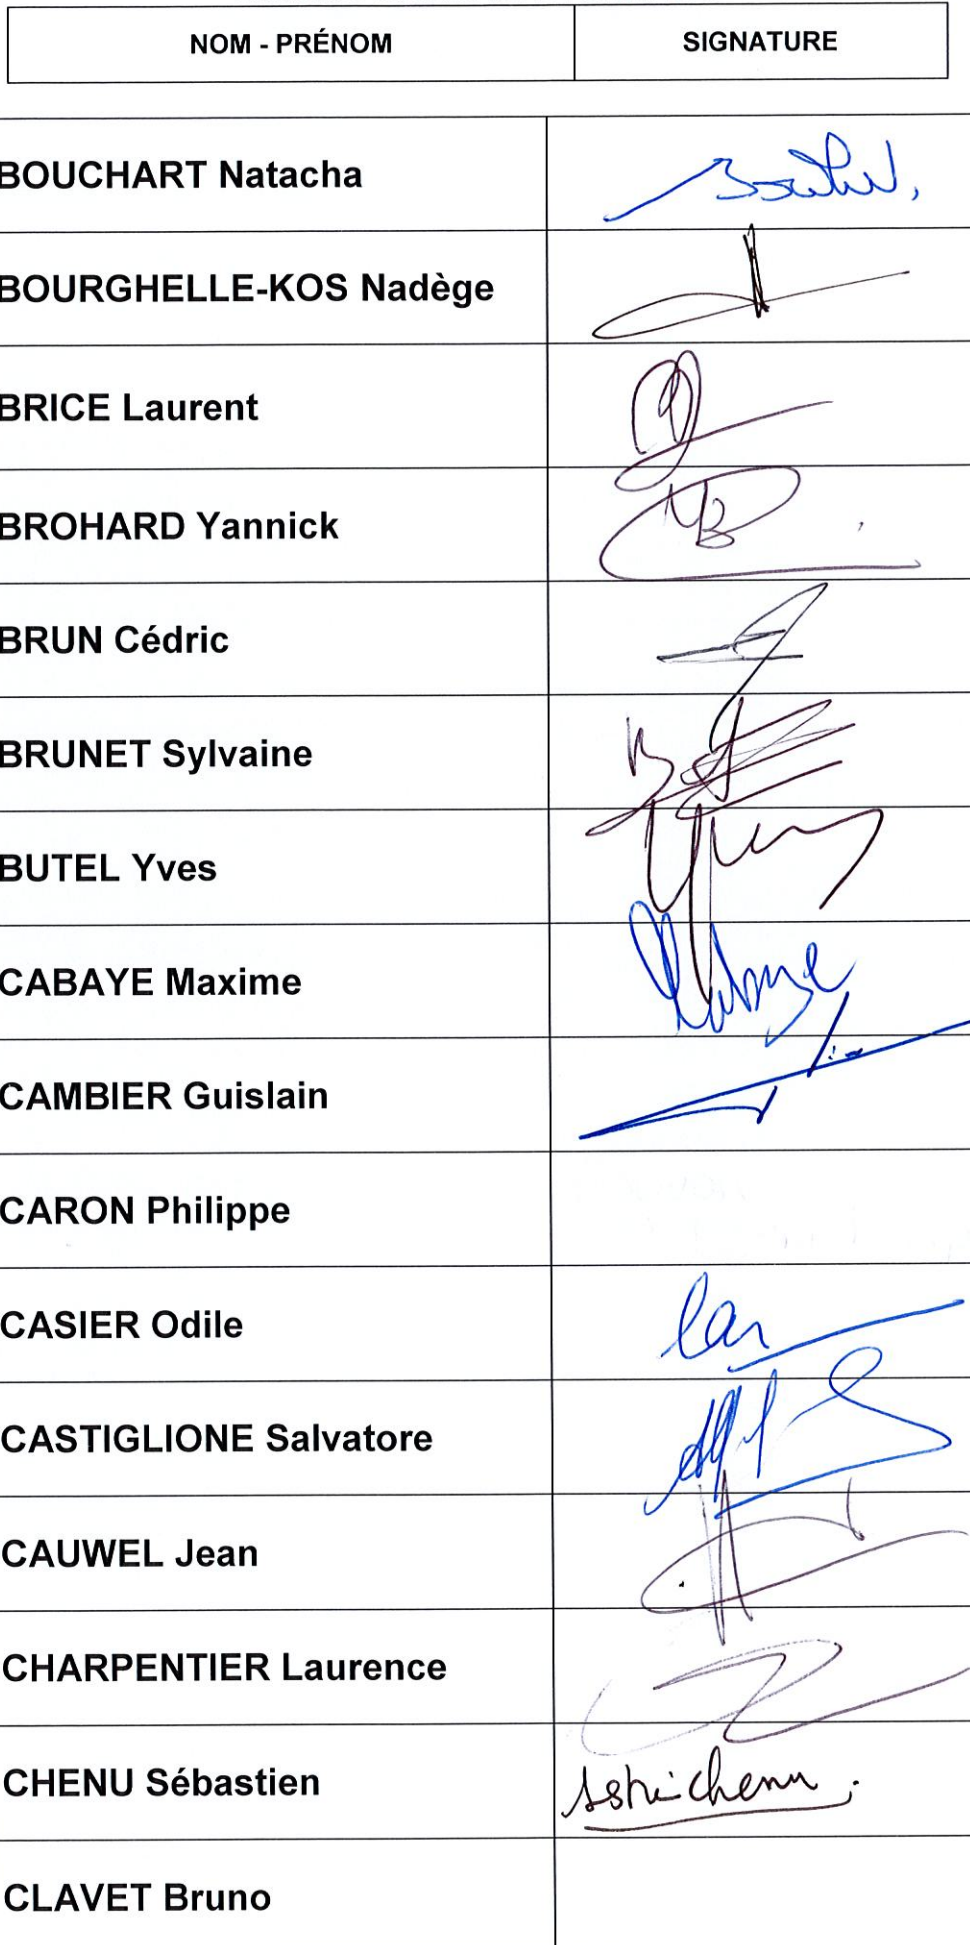 NOM - PRÉNOM SIGNATURE
BOUCHART Natacha
BOURGHELLE-KOS Nadège
BRICE Laurent
BROHARD Yannick
BRUN Cédric
BRUNET Sylvaine
BUTEL Yves
CABAYE Maxime
CAMBIER Guislain
CARON Philippe
CASIER Odile
CASTIGLIONE Salvatore
CAUWEL Jean
CHARPENTIER Laurence
CHENU Sébastien
CLAVET Bruno